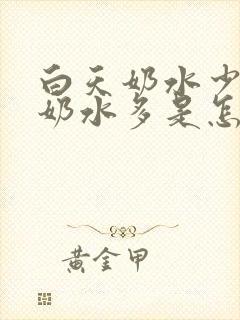 白天奶水少
奶水多是怎
黄金甲